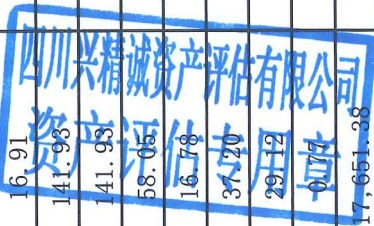 四川兴精诚资产评估有限公司
资产评估专用章
16.91
141.93
141.93
58.05
16.78
37.20
29.12
0.77
17,651.38